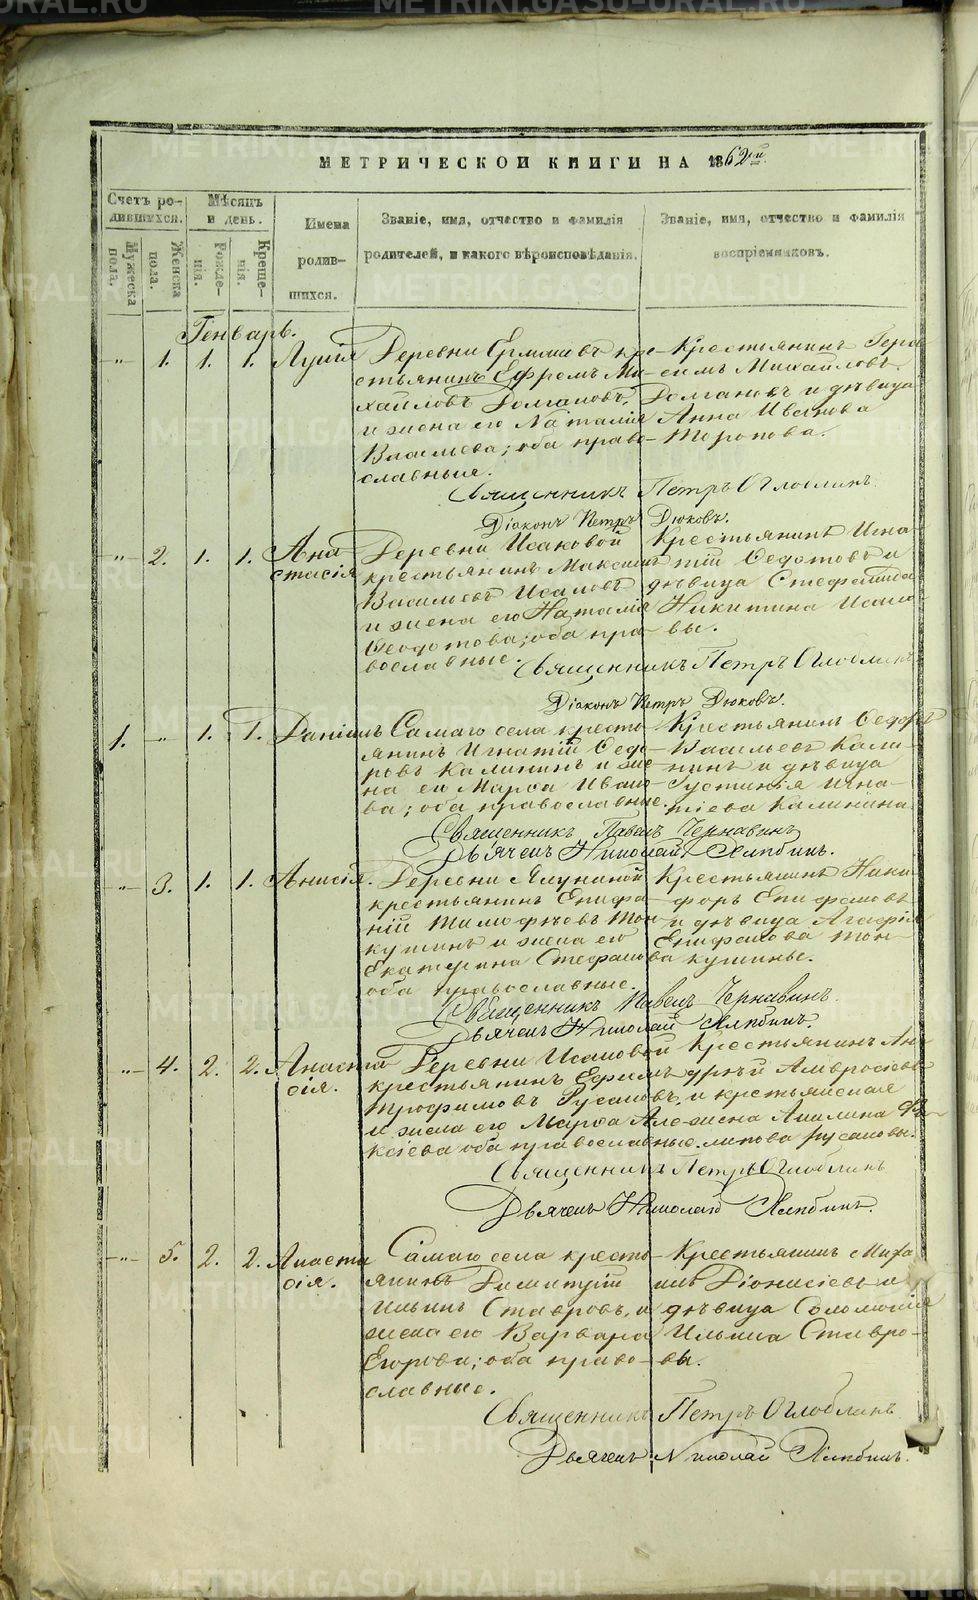 METRIKI.GASO-URAL.RU
МЕТРИЧЕСКОЙ КНИГИ НА 1862й.
Счетъ ро-
дившихся.
Мѣсяцъ
и день.
Имена
родив-
шихся.
Званіе, имя, отчество и фамилія
родителей, и какого вѣроисповѣданія.
Званіе, имя, отчество и фамилія
воспріемниковъ.
Мужеска
пола.
Женска
пола.
Рожде-
нія.
Креще-
нія.
Генварь.
-"- 1. 1. 1.
Деревни кре-
стьянинъ Ефремъ Ми-
хайловъ Долгановъ,
и жена его Наталія
Васильева; оба право-
славныя.
Крестьянинъ Гера-
симъ Михайловъ
Долгановъ и дѣвица
Анна Иванова
Торопова.
Священникъ Петръ Оглоблинъ
Діаконъ Петръ Дюковъ.
-"- 2. 1. 1.
Ана
стасія
Деревни Исаковой
крестьянинъ Максимъ
Васильевъ Исаковъ
и жена его Наталія
Ѳеодотова; оба пра-
вославные.
Крестьянинъ Игна-
тій Ѳедотовъ и
дѣвица Стефанида
Никитина Исако-
вы.
Священникъ Петръ Оглоблинъ
Діаконъ Петръ Дюковъ.
1. -"- 1. 1.
Даніилъ
Самаго села кресть-
янинъ Игнатій Ѳедо-
ровъ Калининъ и же-
на ео Марѳа Ивано-
ва; оба православные.
Крестьянинъ Ѳедоръ
Васильевъ Кали-
нинъ и дѣвица
Іустинія Игна-
тіева Калинина
Священникъ Павелъ Чернавинъ
Дьячекъ Николай Хлѣбинъ.
-"- 3. 1. 1.
Анисія.
Деревни Ялуниной
крестьянинъ Епифа-
ній Тимофѣевъ Тон-
кушинъ и жена его
Екатерина Стефанова
оба православные.
Крестьянинъ Ники-
форъ Епифановъ
и дѣвица Агафія
Епифанова Тон-
кушины.
Священникъ Павелъ Чернавинъ
Дьячекъ Николай Хлѣбинъ.
-"- 4. 2. 2.
Анаста
сія.
Деревни Исаковой
крестьянинъ Ефимъ
Трофимовъ Русаковъ,
и жена его Марѳа Але-
ксіева оба православные.
Крестьянинъ Ан-
дрей Амвросіевъ
и крестьянская
жена Акилина Фи-
липова Русаковы.
Священникъ Петръ Оглоблинъ
Дьячекъ Николай Хлѣбинъ.
-"- 5. 2. 2.
Анаста
сія.
Самаго села кресть-
янинъ Димитрій
Ильинъ Ставровъ, и
жена его Варвара
Егорова; оба право-
славные.
Крестьянинъ Миха-
илъ Діонисіевъ и
дѣвица Соломонія
Ильина Ставро-
вы.
Священникъ Петръ Оглоблинъ
Дьячекъ Николай Хлѣбинъ.